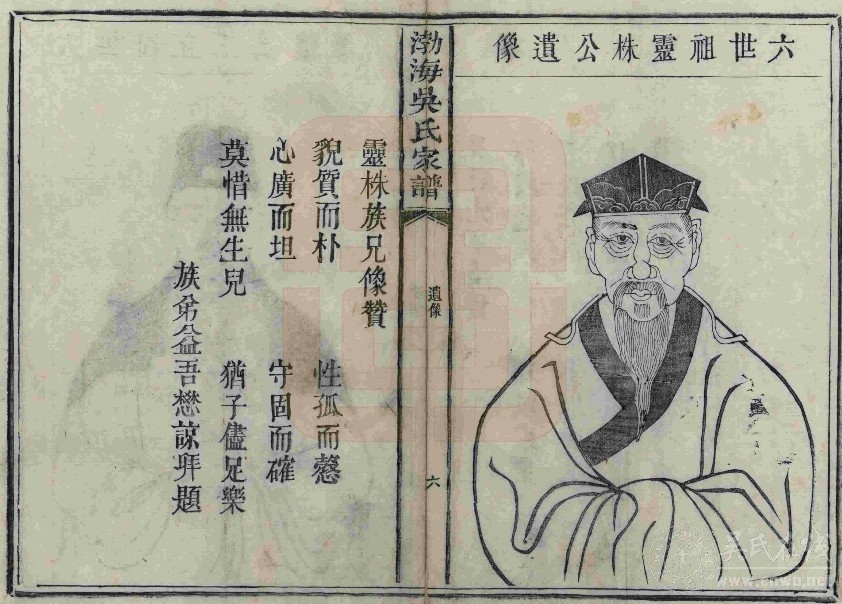 六世祖靈株公遺像
渤海吳氏家譜
遺像
六
靈株族兄像贊
貌質而朴 性孤而慤
心廣而坦 守固而確
莫惜無生兒 猶子儘足樂
族弟益吾懋諒拜題
吳氏在线
www.cnwu.net